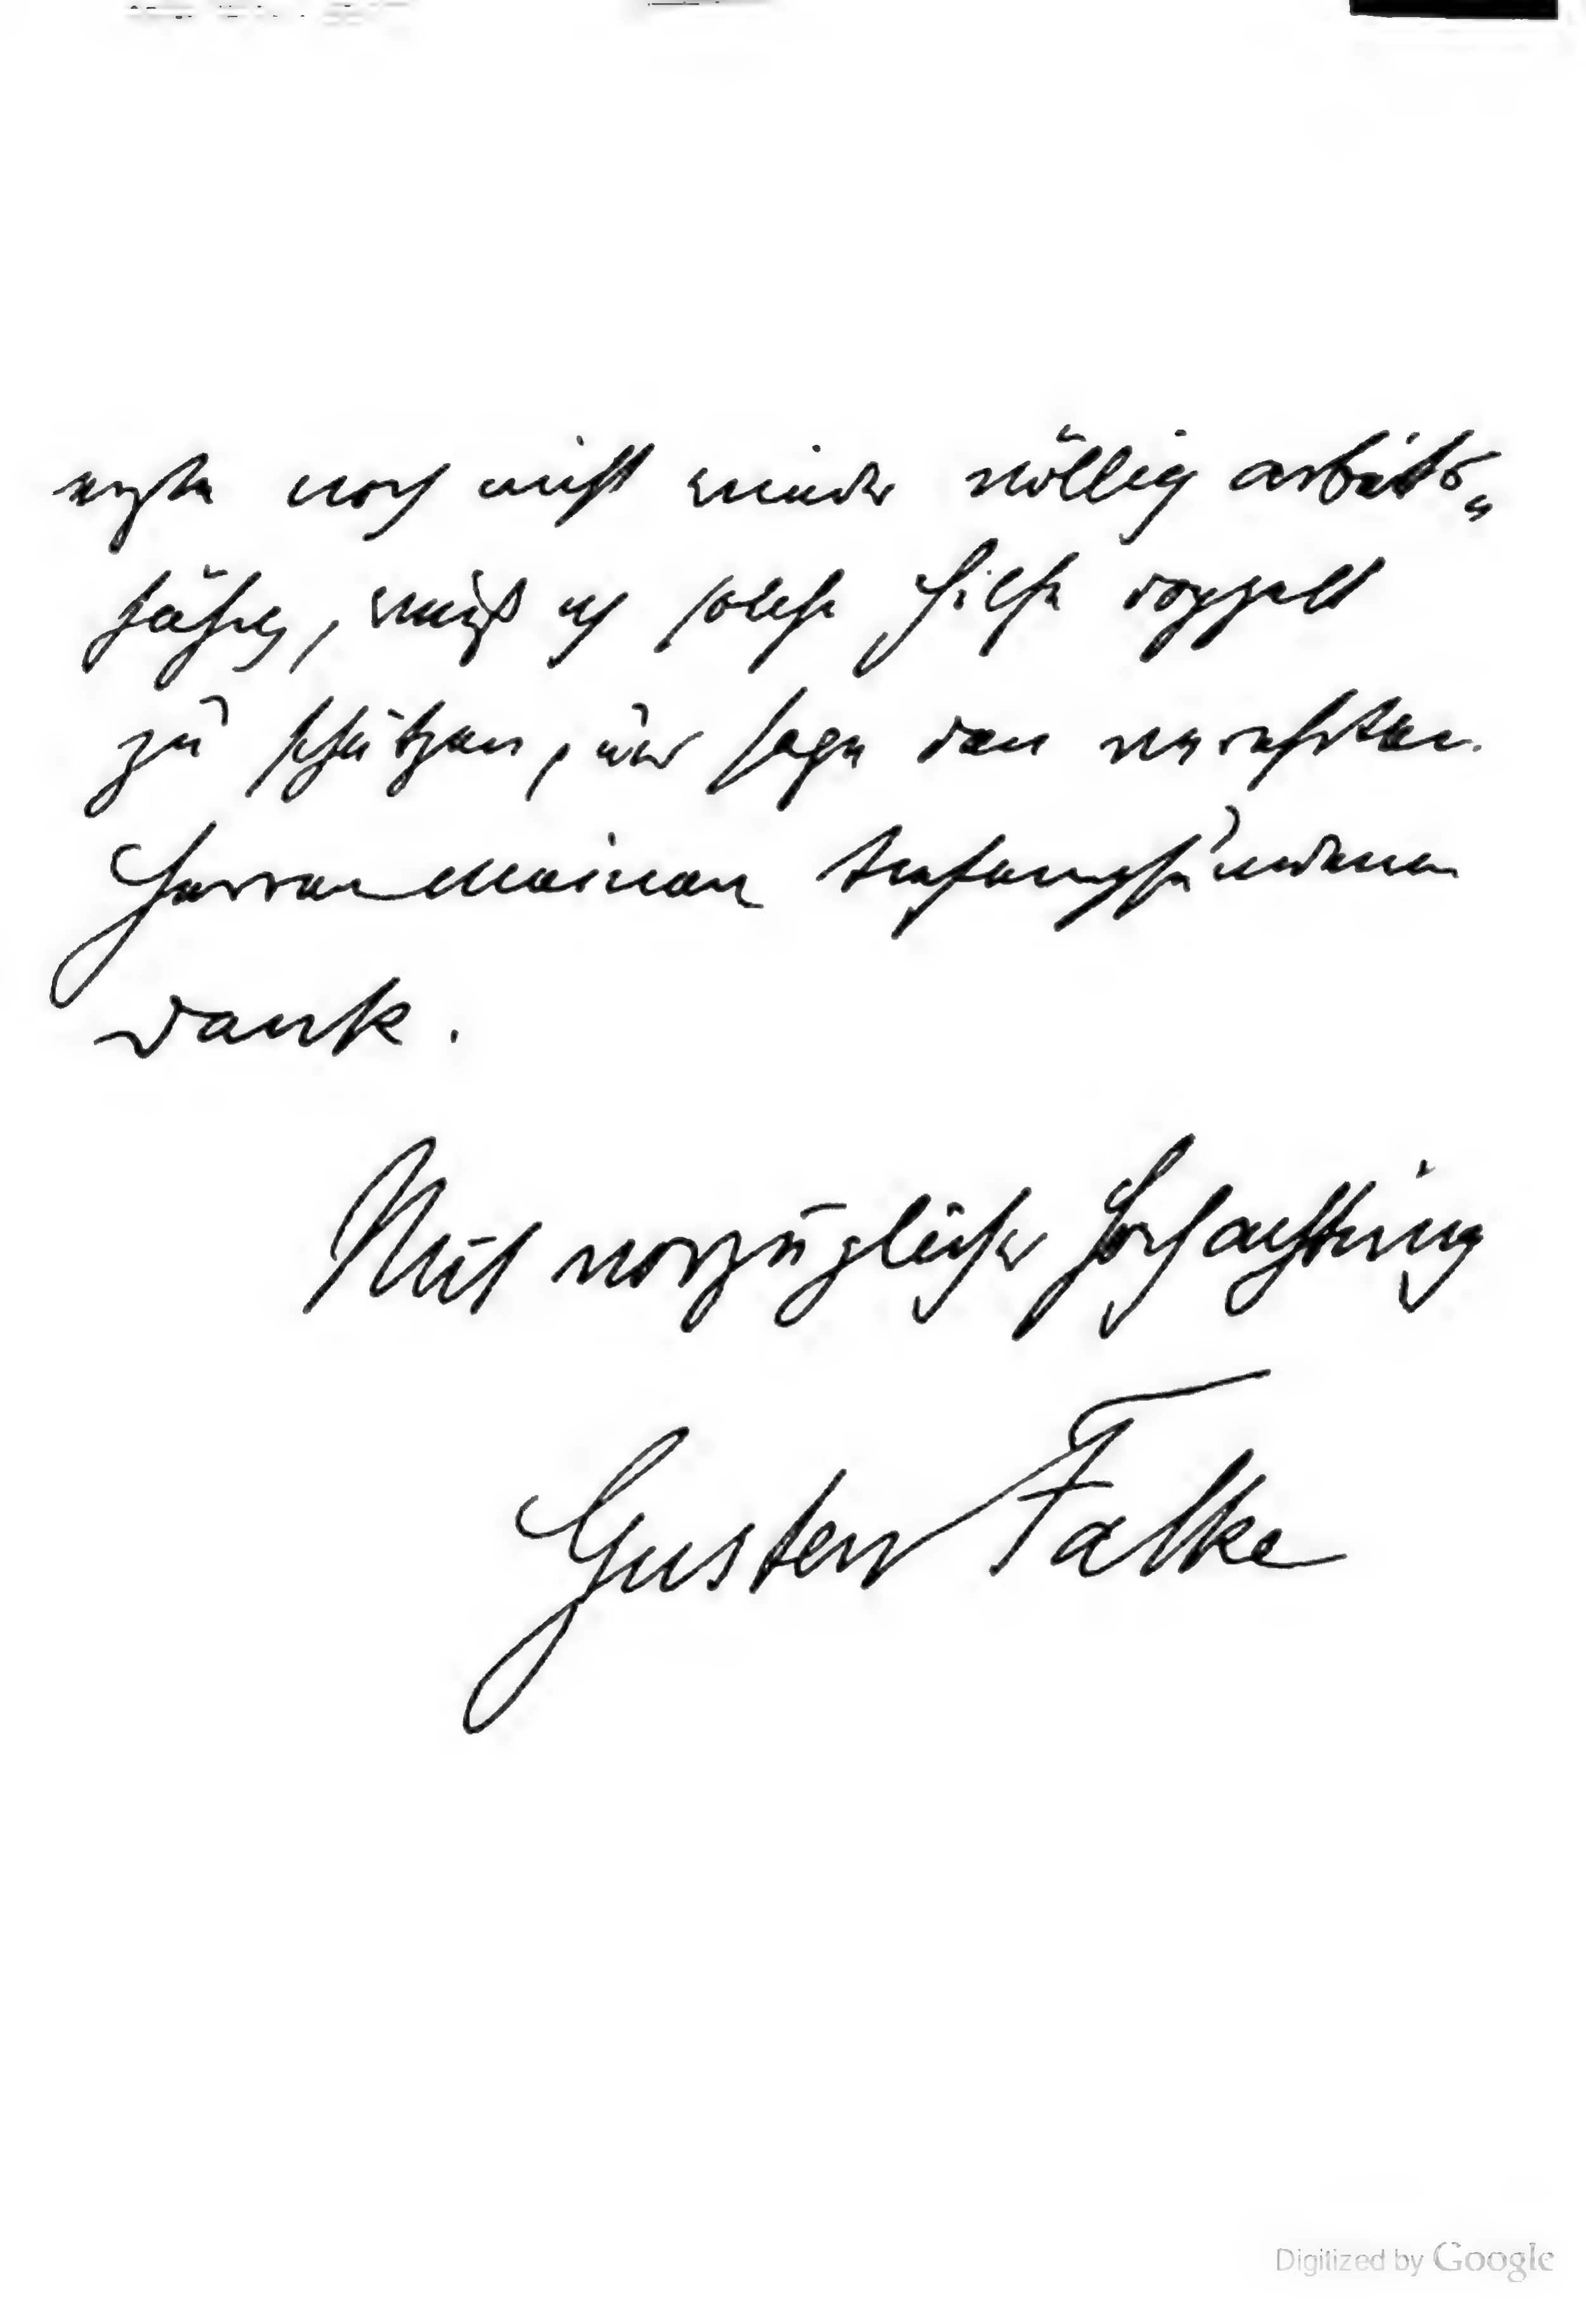 noch nicht wieder völlig arbeits„
fähig, weiß ich solche Hilfe doppelt
zu schätzen, und sage den verehrten
Herren meinen tiefempfundenen
Dank.
Mit vorzüglicher Hochachtung
Gustav Falke
Digitized by Google